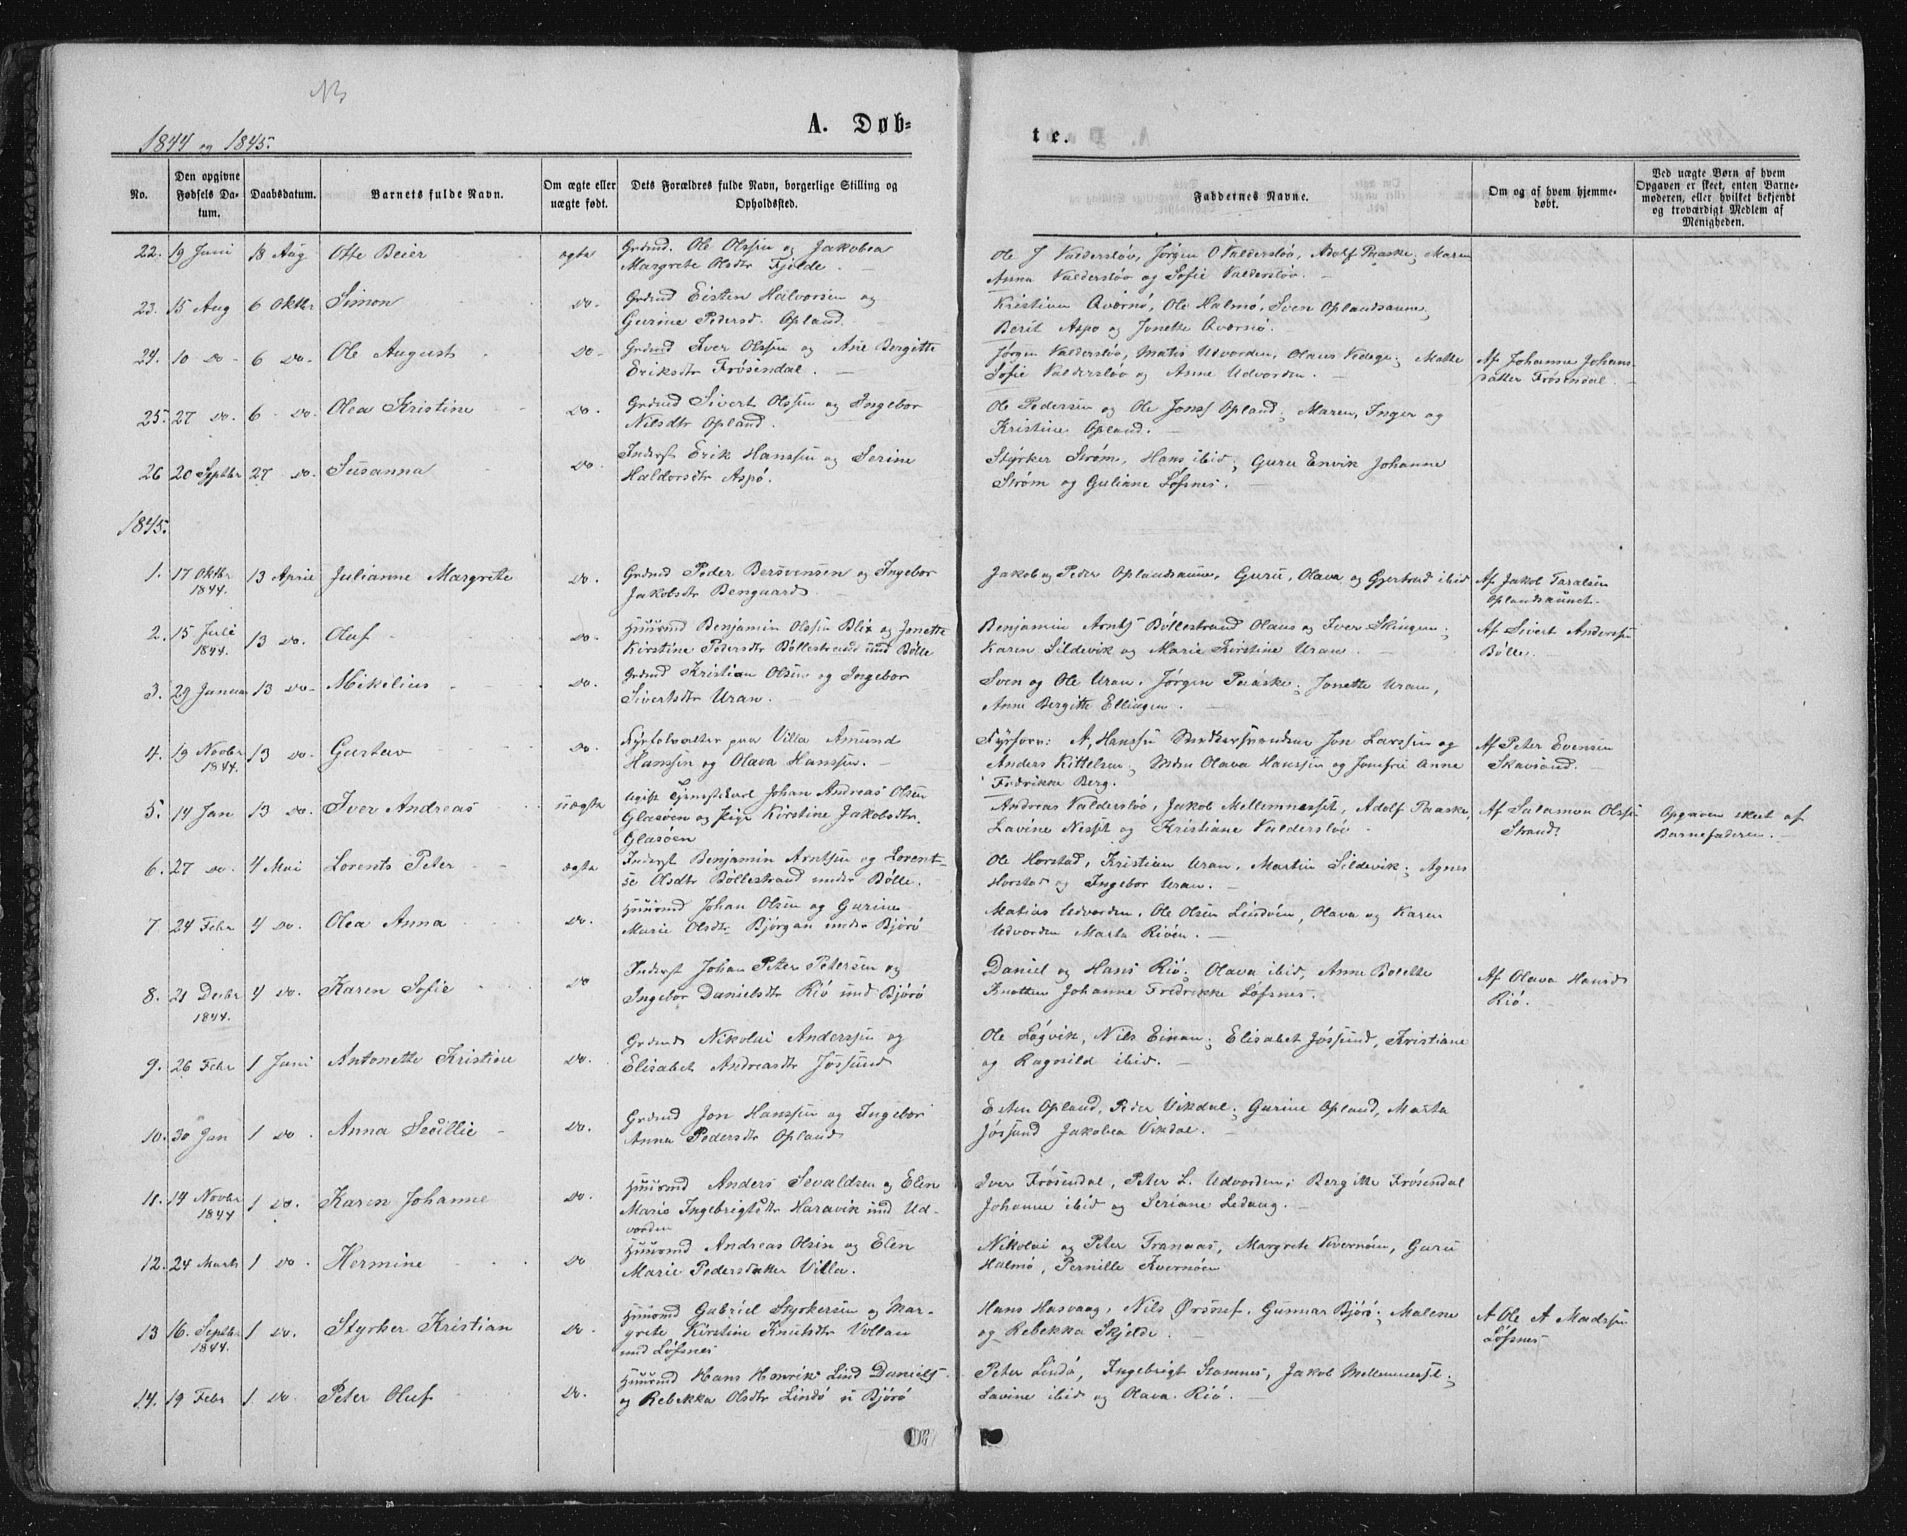 NB
1844 og 1845.
A. Døb-
te.
No.
Den opgivne Fødsels Da-tum.
Daabsdatum.
Barnets fulde Navn.
Om ægte eller uægte født.
Dets Forældres fulde Navn, borgerlige Stilling og Opholdssted.
Faddernes Navne.
Om og af hvem hjemme-døbt.
Ved uægte Børn af hvem Opgaven er skeet, enten Barne-moderen, eller hvilket bekjendt og troværdigt Medlem af Menigheden.
22. 19 Juni 18 Aug Otte Beier ægte Grdmd. Ole Olssen og Jakobea
Margrete Olsdtr Fjølde.
Ole J Valdersløv, Jørgen O Valdersløv, Adolf Paaske; Maren
Anna Valdersløv og Sofie Valdersløv.
23. 15 Aug 6 Oktbr Simon do. Grdmd Eisten Halvorsen og
Gurine Pedersd. Opland.
Kristian Qværnø, Ole Halmø, Sven Oplandsaune,
Berit Aspø og Jonette Qværnø.
24. 10 do 6 do. Ole August do. Grdmd Iver Olssen og Ane Bergitte
Eriksdtr Frøsendal.
Jørgen Valdersløv, Matis Udvorden, Olaus Videge; Mette
Sofie Valdersløv og Anne Udvorden.
Af Johanne Johans
datter Frøsendal.
25. 27 do. 6 do. Olea Kristine do. Grdmd Sivert Olssen og Ingebor
Nilsdtr Opland.
Ole Pedersen og Ole Jonss Opland; Maren, Inger og
Kristine Opland.
26 20 Septbr 27 do. Susanna do. Inderst Erik Hanssen og Serine
Haldorsdtr Aspø.
Styrker Strøm, Hans ibid; Guru Envik Johanne
Strøm og Guliane Løfsnes.
1845.
1. 17 Oktbr 1844. 13 April Julianne Margrete do. Grdmd Peder Bersvensen og Ingebor
Jakobsdtr Bengaard
Jakob og Peder Oplandsaune, Guru, Olava og Gjertrud ibid
Af Jakob Taralsen
Oplandsaunet.
2. 15 Juli 1844. 13 do. Oluf do. Huusmd Benjamin Olssen Blix og Jonette
Kirstine Pedersdtr Bøllestrand und Bølle
Benjamin Arntss Bøllestrand Olaus og Iver Skingen;
Karen Sildevik og Marie Kirstine Uran.
Af Sivert Anderssen
Bølle.
3. 29 Januar 13 do. Mikelius do. Grdmd Kristian Olsen og Ingebor
Sivertsdtr Uran.
Sven og Ole Uran, Jørgen Paaske; Jonette Uran,
Anne Bergitte Ellingen.
4. 19 Novbr 1844. 13 do. Gustav do. Fyrfolvalter paa Villa Amund
Hanssen og Olava Hanssen.
Fyrforv: A, Hanssen Jon Larssen og
Anders Kittelsen; Mdm Olava Hanssen og Jomfru Anne
Fredrikke Berg.
Af Peter Evensen
Skavsand.
5. 14 Jan 13 do. Iver Andreas uægte Ugift Tjenestkarl Johan Andreas Olsen
Glasøen og Pige Kirstine Jakobsdtr.
Glasøen
Andreas Valdersløv, Jakob Mellemnesset, Adolf Paaske,
Lavine Nesset og Kristiane Valdersløv.
Af Salamon Olssen
Strand
Opgaven skeet af
Barnefaderen.
6. 27 do. 4 Mai Lorents Peter ægte Inderst Benjamin Arntsen og Lorent-
se Olsdtr Bøllestrand under Bølle.
Ole Horstad, Kristian Uran, Martin Sildevik; Agnes
Horstad og Ingebor Uran.
7 24 Febr 4 do. Olea Anna do. Huusmd Johan Olsen og Gurine
Marie Olsdtr Bjørgan under Bjørø
Matias Udvorden, Ole Olsen Lindøen, Olava og Karen
Udvorden Marta Riøen.
8. 21 Decbr 1844. 4 do. Karen Sofie do Inderst Johan Peter Petersen og
Ingebor Danielsdtr Riø und Bjørø
Daniel og Hans Riø; Olava ibid, Anne Bolette
Knotten Johanne Fredrikke Løfsnes.
Af Olava Hansd
Riø.
9. 26 Febr 1 Juni Antonette Kristine do. Grdmd Nikolai Anderssen og
Elisabet Andreasdtr Jøssund
Ole Løgvik, Nils Einan; Elisabet Jøssund, Kristiane
og Ragnild ibid.
10. 30 Jan 1 do. Anna Secillie do. Grdmd Jon Hanssen og Ingebor
Anna Pedersdtr Opland
Esten Opland, Peder Vikdal; Gurine Opland, Marta
Jøssund Jakobea Vikdal.
11. 14 Novbr 1844 1 do. Karen Johanne do. Huusmd Anders Sevaldsen og Elen
Marie Ingebrigtsdtr Haravik und Ud-
vorden
Iver Frøsendal, Peter L. Udvorden; Bergitte Frøsendal
Johanne ibid og Seriane Ledang.
12. 24 Marts 1 do Hermine do Huusmd Andreas Olsen og Elen
Marie Pedersdatter Villa.
Nikolai og Peter Tranaas, Margrete Kvernøen, Guru
Halmø, Pernille Kvernøen
13 16. Septbr 1844. 1 do. Styrker Kristian do. Huusmd Gabriel Styrkersen og Mar-
grete Kirstine Knutsdtr Vollan
und Løfsnes
Hans Hasvaag, Nils Ørsnes, Gunnar Bjørø; Malene
og Rebekka Skjelde.
A Ole A Madssen
Løfsnes
14. 19 Febr 1 do. Peter Oluf do. Huusmd Hans Henrik Lind Daniels
og Rebekka Olsdtr Lindø u Bjørø
Peter Lindø, Ingebrigt Stamnes, Jakob Mellemnesset;
Lavine ibid og Olava Riø.